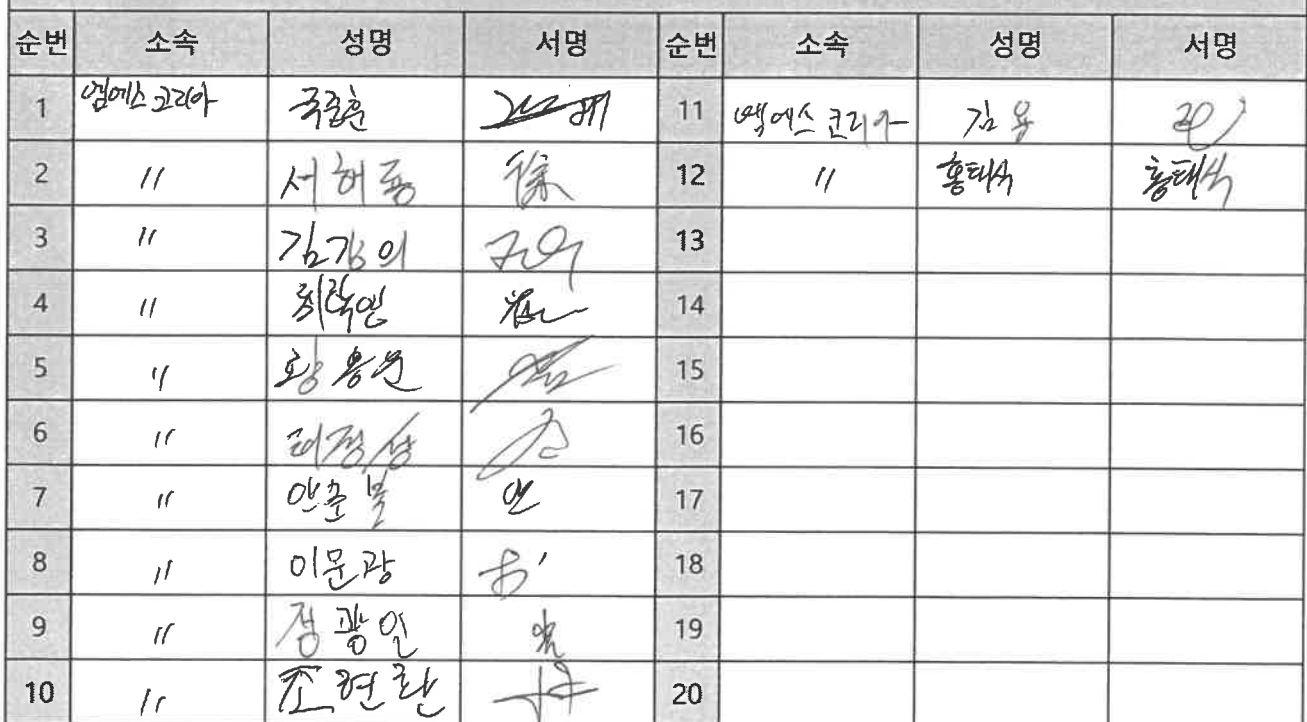 순번 소속 성명 서명 순번 소속 성명 서명
1 엠에스코리아 국중훈 11 엠에스코리아 김용
2 〃 서허룡 徐 12 〃 홍태식 홍태식
3 〃 김강의 13
4 〃 14
5 〃 황용운 15
6 〃 16
7 〃 안춘봉 안 17
8 〃 이문광 18
9 〃 정광일 19
10 〃 조현란 20